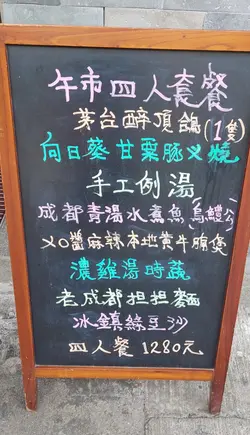 午市四人套餐
茅台醉頂鴿(1隻)
向日葵甘栗豚叉燒
手工例湯
成都青湯水煮魚(烏鱧公)
XO醬麻辣本地黃牛腩煲
濃雞湯時蔬
老成都担担麵
冰鎮綠豆沙
四人餐 1280元